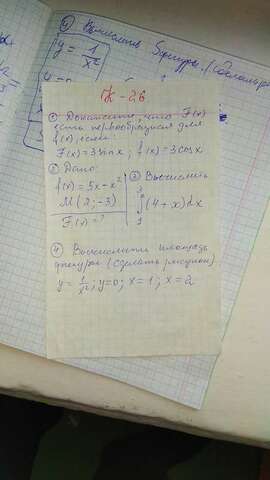 ④ Вычислить S фигуры. (сделать р
y = 1/x²
К-2б
① Докажите, что F(x)
есть первообразная для
f(x), если
F(x) = 3 sin x, f(x) = 3 cos x
② Дано:
f(x) = 5x - x²
M(2; -3)
F(x) = ?
③ Вычислить
∫(4 + x)dx
④ Вычислить площадь
фигуры (сделать рисунок)
y = 1/x²; y = 0; x = 1; x = 2